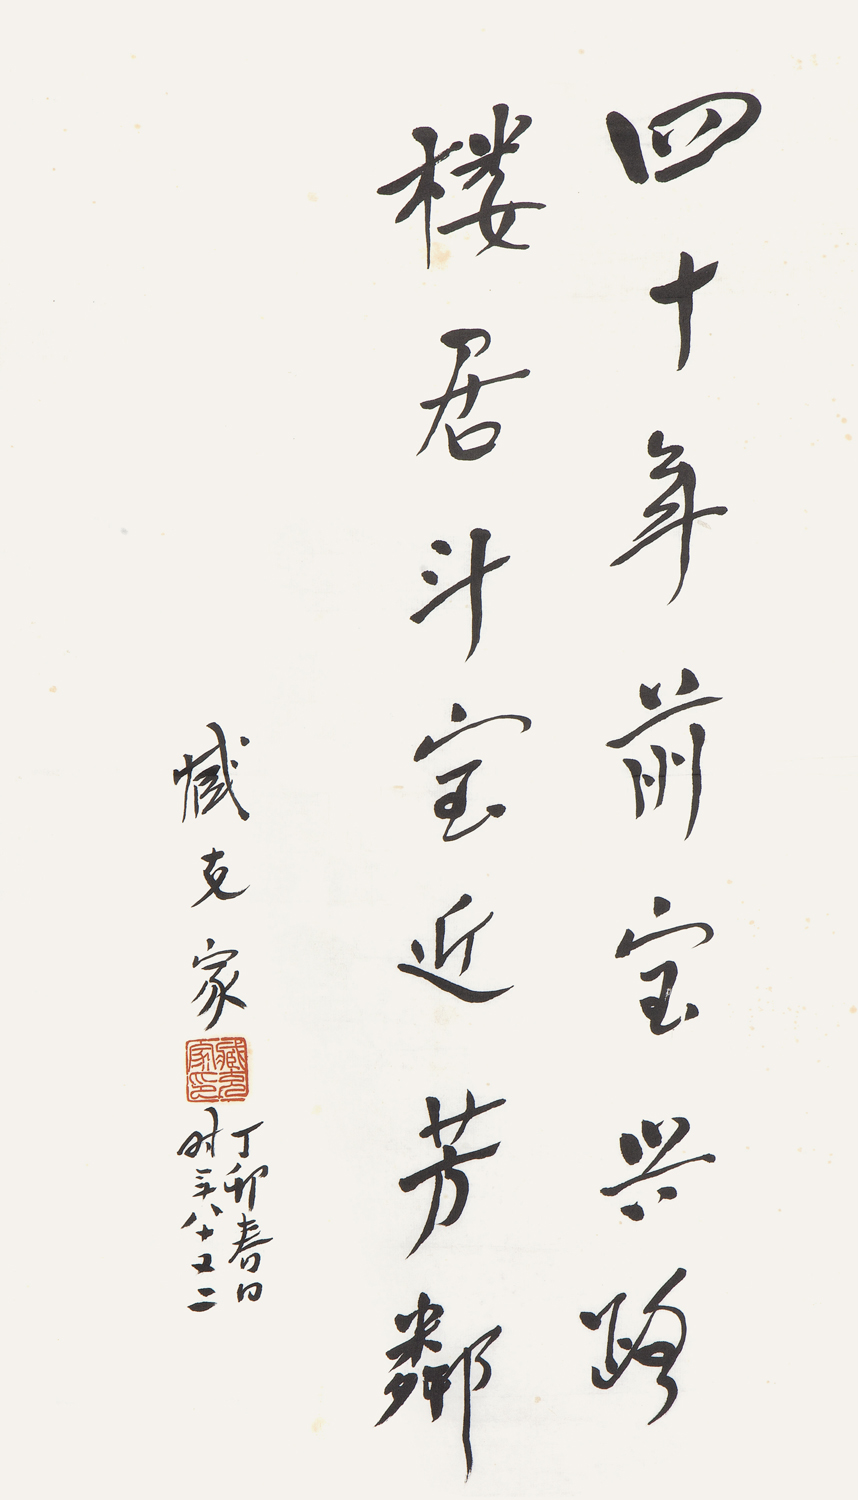 四十年前宝兴路
楼居斗室近芳鄰
臧克家
丁卯春日
时年八十又二
臧克家印